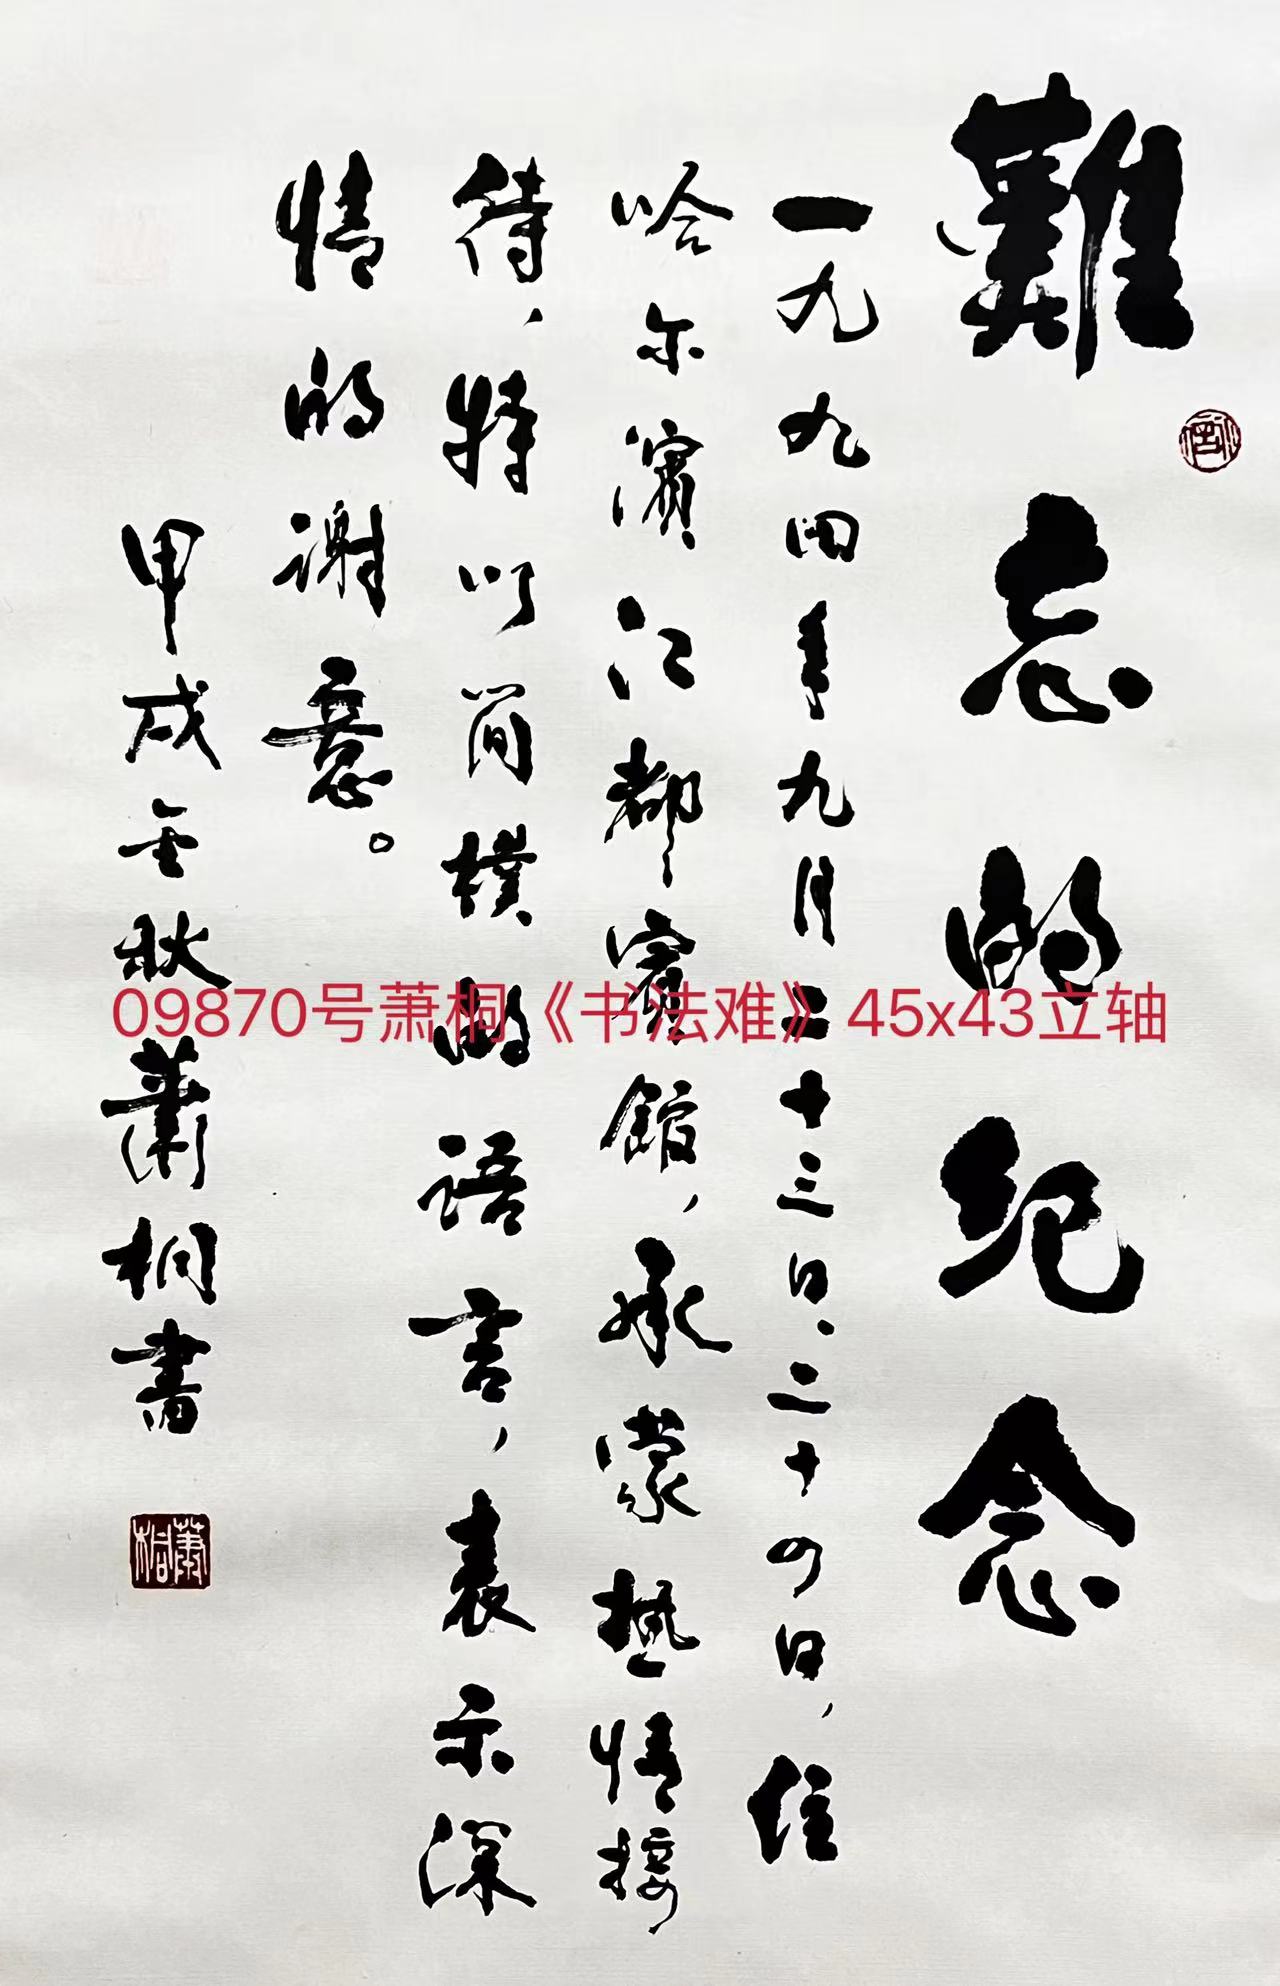 難忘的纪念
一九九四年九月二十三日、二十四日，住
哈尔濱江都賓館，承蒙热情接
待，特以简樸的語言，表示深
情的谢意。
甲戌金秋蕭桐書
蕭桐
09870号萧桐《书法难》45x43立轴